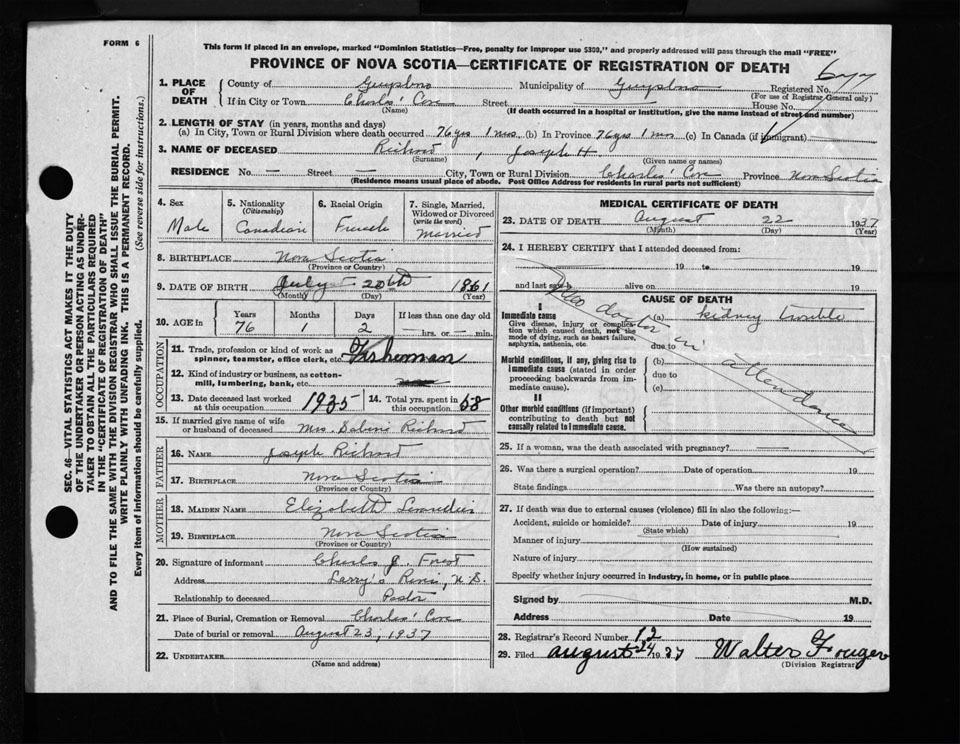 FORM 6
This form if placed in an envelope, marked "Dominion Statistics—Free, penalty for improper use $300," and properly addressed will pass through the mail "FREE"
PROVINCE OF NOVA SCOTIA—CERTIFICATE OF REGISTRATION OF DEATH
677
1. PLACE OF DEATH
County of Guysboro Municipality of Guysboro Registered No.
(For use of Registrar General only)
If in City or Town Charlos' Cove Street — House No.
(Name) (If death occurred in a hospital or institution, give the name instead of street and number)
2. LENGTH OF STAY (in years, months and days)
(a) In City, Town or Rural Division where death occurred 76 yrs 1 mos. (b) In Province 76 yrs 1 mos (c) In Canada (if immigrant)
3. NAME OF DECEASED Richard, Joseph H.
(Surname) (Given name or names)
RESIDENCE No. — Street — City, Town or Rural Division Charlos' Cove Province Nova Scotia
(Residence means usual place of abode. Post Office Address for residents in rural parts not sufficient)
4. Sex
Male
5. Nationality
(Citizenship)
Canadian
6. Racial Origin
French
7. Single, Married, Widowed or Divorced
(Write the word)
Married
8. BIRTHPLACE Nova Scotia
(Province or Country)
9. DATE OF BIRTH July 20th 1861
(Month) (Day) (Year)
10. AGE in
Years Months Days If less than one day old
76 1 2 — hrs. or — min.
OCCUPATION
11. Trade, profession or kind of work as spinner, teamster, office clerk, etc. Fisherman
12. Kind of industry or business, as cotton-mill, lumbering, bank, etc.
13. Date deceased last worked at this occupation 1935
14. Total yrs. spent in this occupation 58
15. If married give name of wife or husband of deceased Mrs. Sabine Richard
FATHER
16. NAME Joseph Richard
17. BIRTHPLACE Nova Scotia
(Province or Country)
MOTHER
18. MAIDEN NAME Elizabeth
19. BIRTHPLACE Nova Scotia
(Province or Country)
20. Signature of informant Charles J. Forest
Address Larry's River, N.S.
Relationship to deceased Pastor
21. Place of Burial, Cremation or Removal Charlos' Cove
Date of burial or removal August 23, 1937
22. UNDERTAKER
(Name and address)
MEDICAL CERTIFICATE OF DEATH
23. DATE OF DEATH August 22 1937
(Month) (Day) (Year)
24. I HEREBY CERTIFY that I attended deceased from:
19 to 19
and last saw h alive on 19
No doctor in attendance
CAUSE OF DEATH
I
Immediate cause (a) kidney trouble
Give disease, injury or complication which caused death, not the mode of dying, such as heart failure, asphyxia, asthenia, etc.
due to
Morbid conditions, if any, giving rise to immediate cause (stated in order proceeding backwards from immediate cause).
(b)
due to
(c)
II
Other morbid conditions (if important) contributing to death but not causally related to immediate cause.
25. If a woman, was the death associated with pregnancy?
26. Was there a surgical operation? Date of operation 19
State findings Was there an autopsy?
27. If death was due to external causes (violence) fill in also the following:—
Accident, suicide or homicide? Date of injury 19
(State which)
Manner of injury
(How sustained)
Nature of injury
Specify whether injury occurred in industry, in home, or in public place
Signed by M.D.
Address Date 19
28. Registrar's Record Number 12
29. Filed August 24 1937 Walter Fougere
(Division Registrar)
SEC. 46—VITAL STATISTICS ACT MAKES IT THE DUTY
OF THE UNDERTAKER OR PERSON ACTING AS UNDER-
TAKER TO OBTAIN ALL THE PARTICULARS REQUIRED
IN THE "CERTIFICATE OF REGISTRATION OF DEATH"
AND TO FILE THE SAME WITH THE DIVISION REGISTRAR WHO SHALL ISSUE THE BURIAL PERMIT.
WRITE PLAINLY WITH UNFADING INK. THIS IS A PERMANENT RECORD.
Every item of information should be carefully supplied. (See reverse side for instructions.)